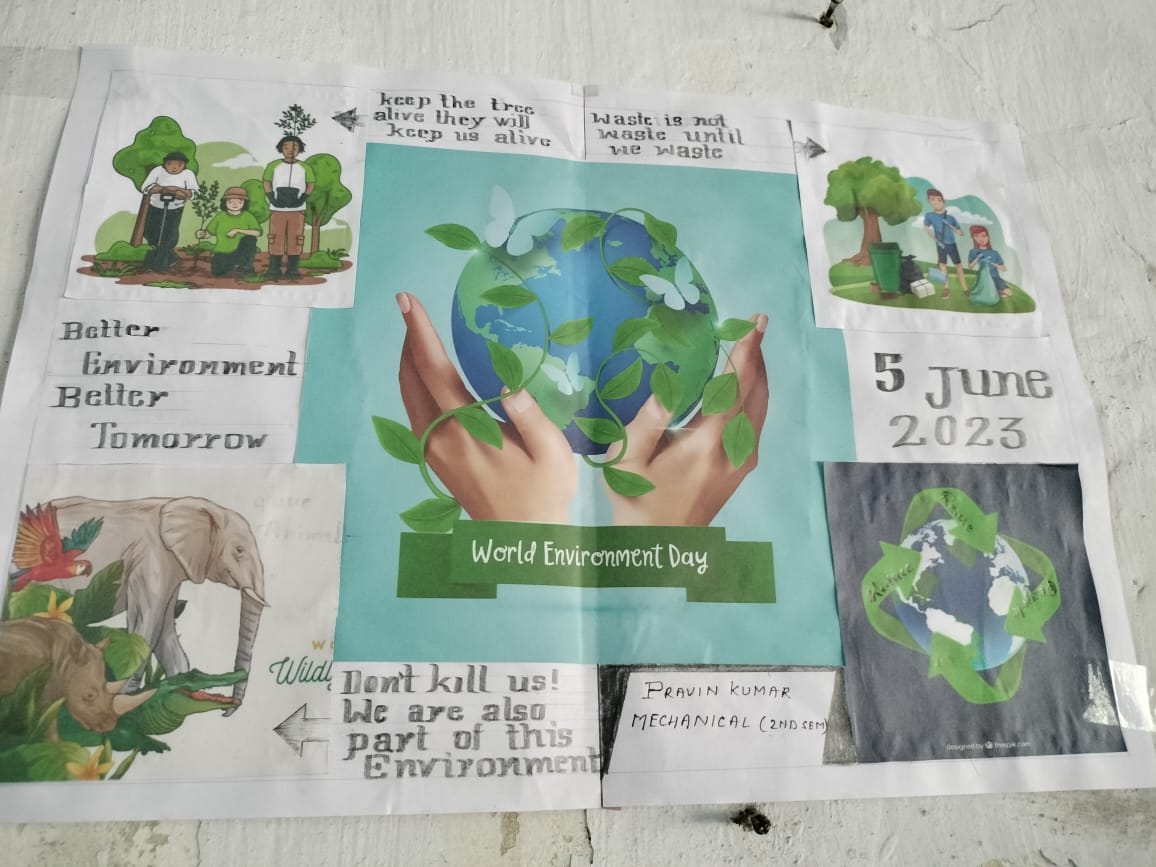 keep the tree
alive they will
keep us alive
Waste is not
waste until
we waste
Better
Environment
Better
Tomorrow
5 June
2023
World Environment Day
Reuse
Reduce
Wildl
Don't kill us!
We are also
part of this
Environment
PRAVIN KUMAR
MECHANICAL (2ND SEM)
designed by freepik.com